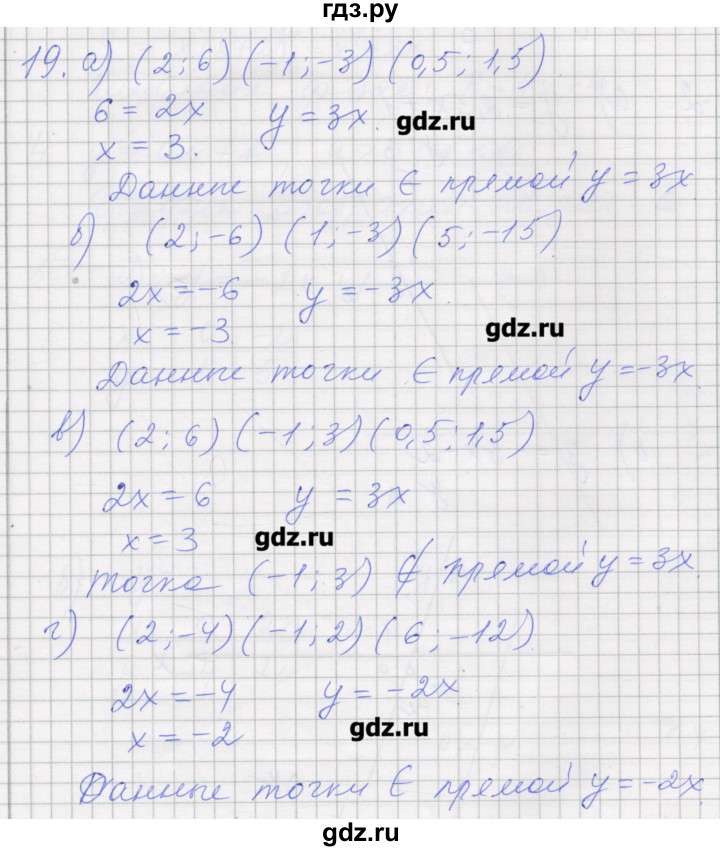 гдз.ру
19. а) (2; 6) (-1; -3) (0,5; 1,5)
6 = 2x y = 3x. gdz.ru
x = 3.
Данные точки Є прямой y = 3x
б) (2; -6) (1; -3) (5; -15)
2x = -6 y = -3x.
x = -3 gdz.ru
Данные точки Є прямой y = -3x
в) (2; 6) (-1; 3) (0,5; 1,5)
2x = 6 y = 3x
x = 3 gdz.ru
точка (-1; 3) ∉ прямой y = 3x.
г) (2; -4) (-1; 2) (6; -12)
2x = -4 y = -2x
x = -2 gdz.ru
Данные точки Є прямой y = -2x.
gdz.ru